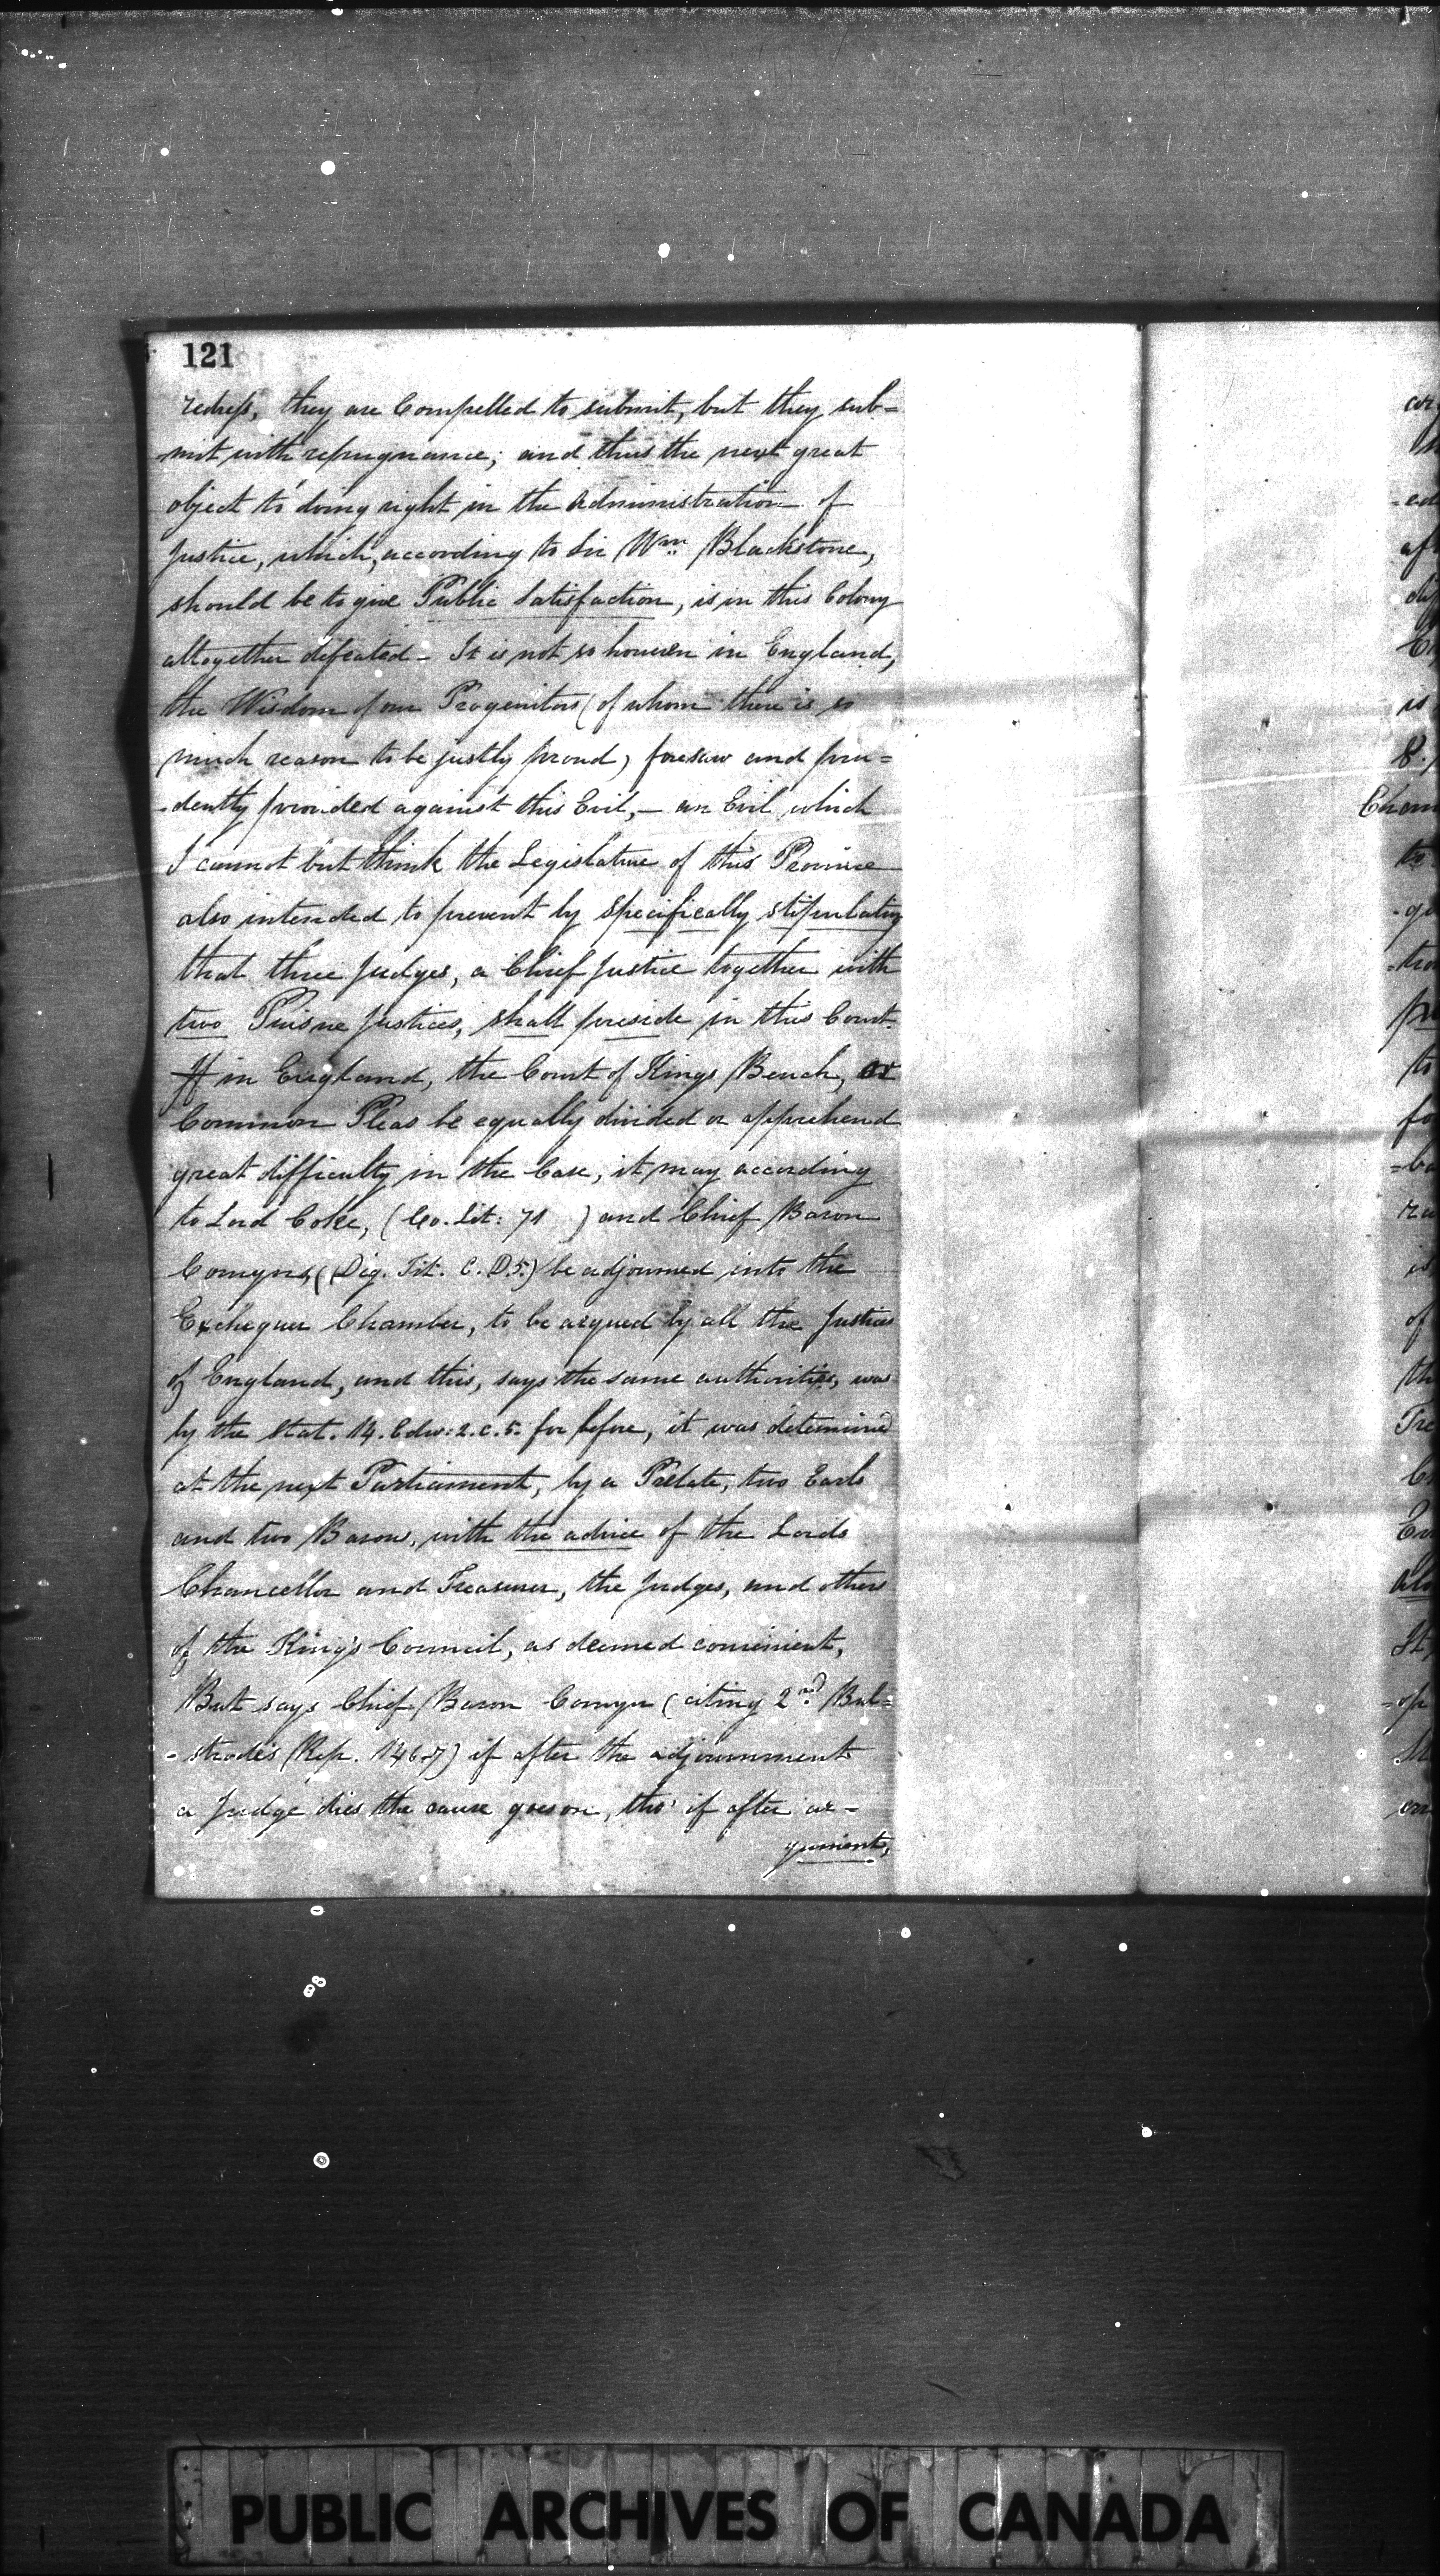 121
redress, they are Compelled to submit, but they sub=
-mit with repugnance; and thus the next great
object to doing right in the Administration of
Justice, which, according to Sir Wm. Blackstone,
should be to give Public Satisfaction, is in this Colony
altogether defeated - It is not so however in England,
the Wisdom of our Progenitors (of whom there is so
much reason to be justly proud) foresaw and pru=
-dently provided against this Evil, - an Evil which
I cannot but think the Legislature of this Province
also intended to prevent by specifically stipulating
that three Judges, a Chief Justice together with
two Puisne Justices, shall preside in this Court.
If in England, the Court of Kings Bench, or
Common Pleas be equally divided or apprehend
great difficulty in the Case, it may according
to Lord Coke, (Co. Lit: 71 ) and Chief Baron
Comyns, (Dig. Tit. C. D.5.) be adjourned into the
Exchequer Chamber, to be argued by all the Justices
of England, and this, says the same authorities, was
by the Stat. 14. Edw: 2. c. 5. for before, it was determined
at the next Parliament, by a Prelate, two Earls
and two Barons, with the advice of the Lords
Chancellor and Treasurer, the Judges, and others
of the King's Council, as deemed convenient,
But says Chief Baron Comyn (citing 2nd Bul=
-strode's Rep. 146.7) if after the adjournment
a Judge dies the cause goes on, tho' if after ar-
gument,
Chan
PUBLIC ARCHIVES OF CANADA